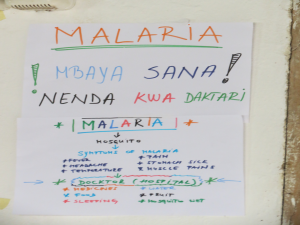 MALARIA
! MBAYA SANA !
NENDA KWA DAKTARI
* | MALARIA | *
MOSQUITO
SYMPTOMS OF MALARIA
+ FEVER + PAIN
+ HEADACHE + STOMACH SICK
+ TEMPERATURE + MUSCLE PAINS
* DOCKTOR (HOSPITAL) *
* MEDICINES * WATER
* FOOD * FRUIT
* SLEEPING * MOSQUITO NET